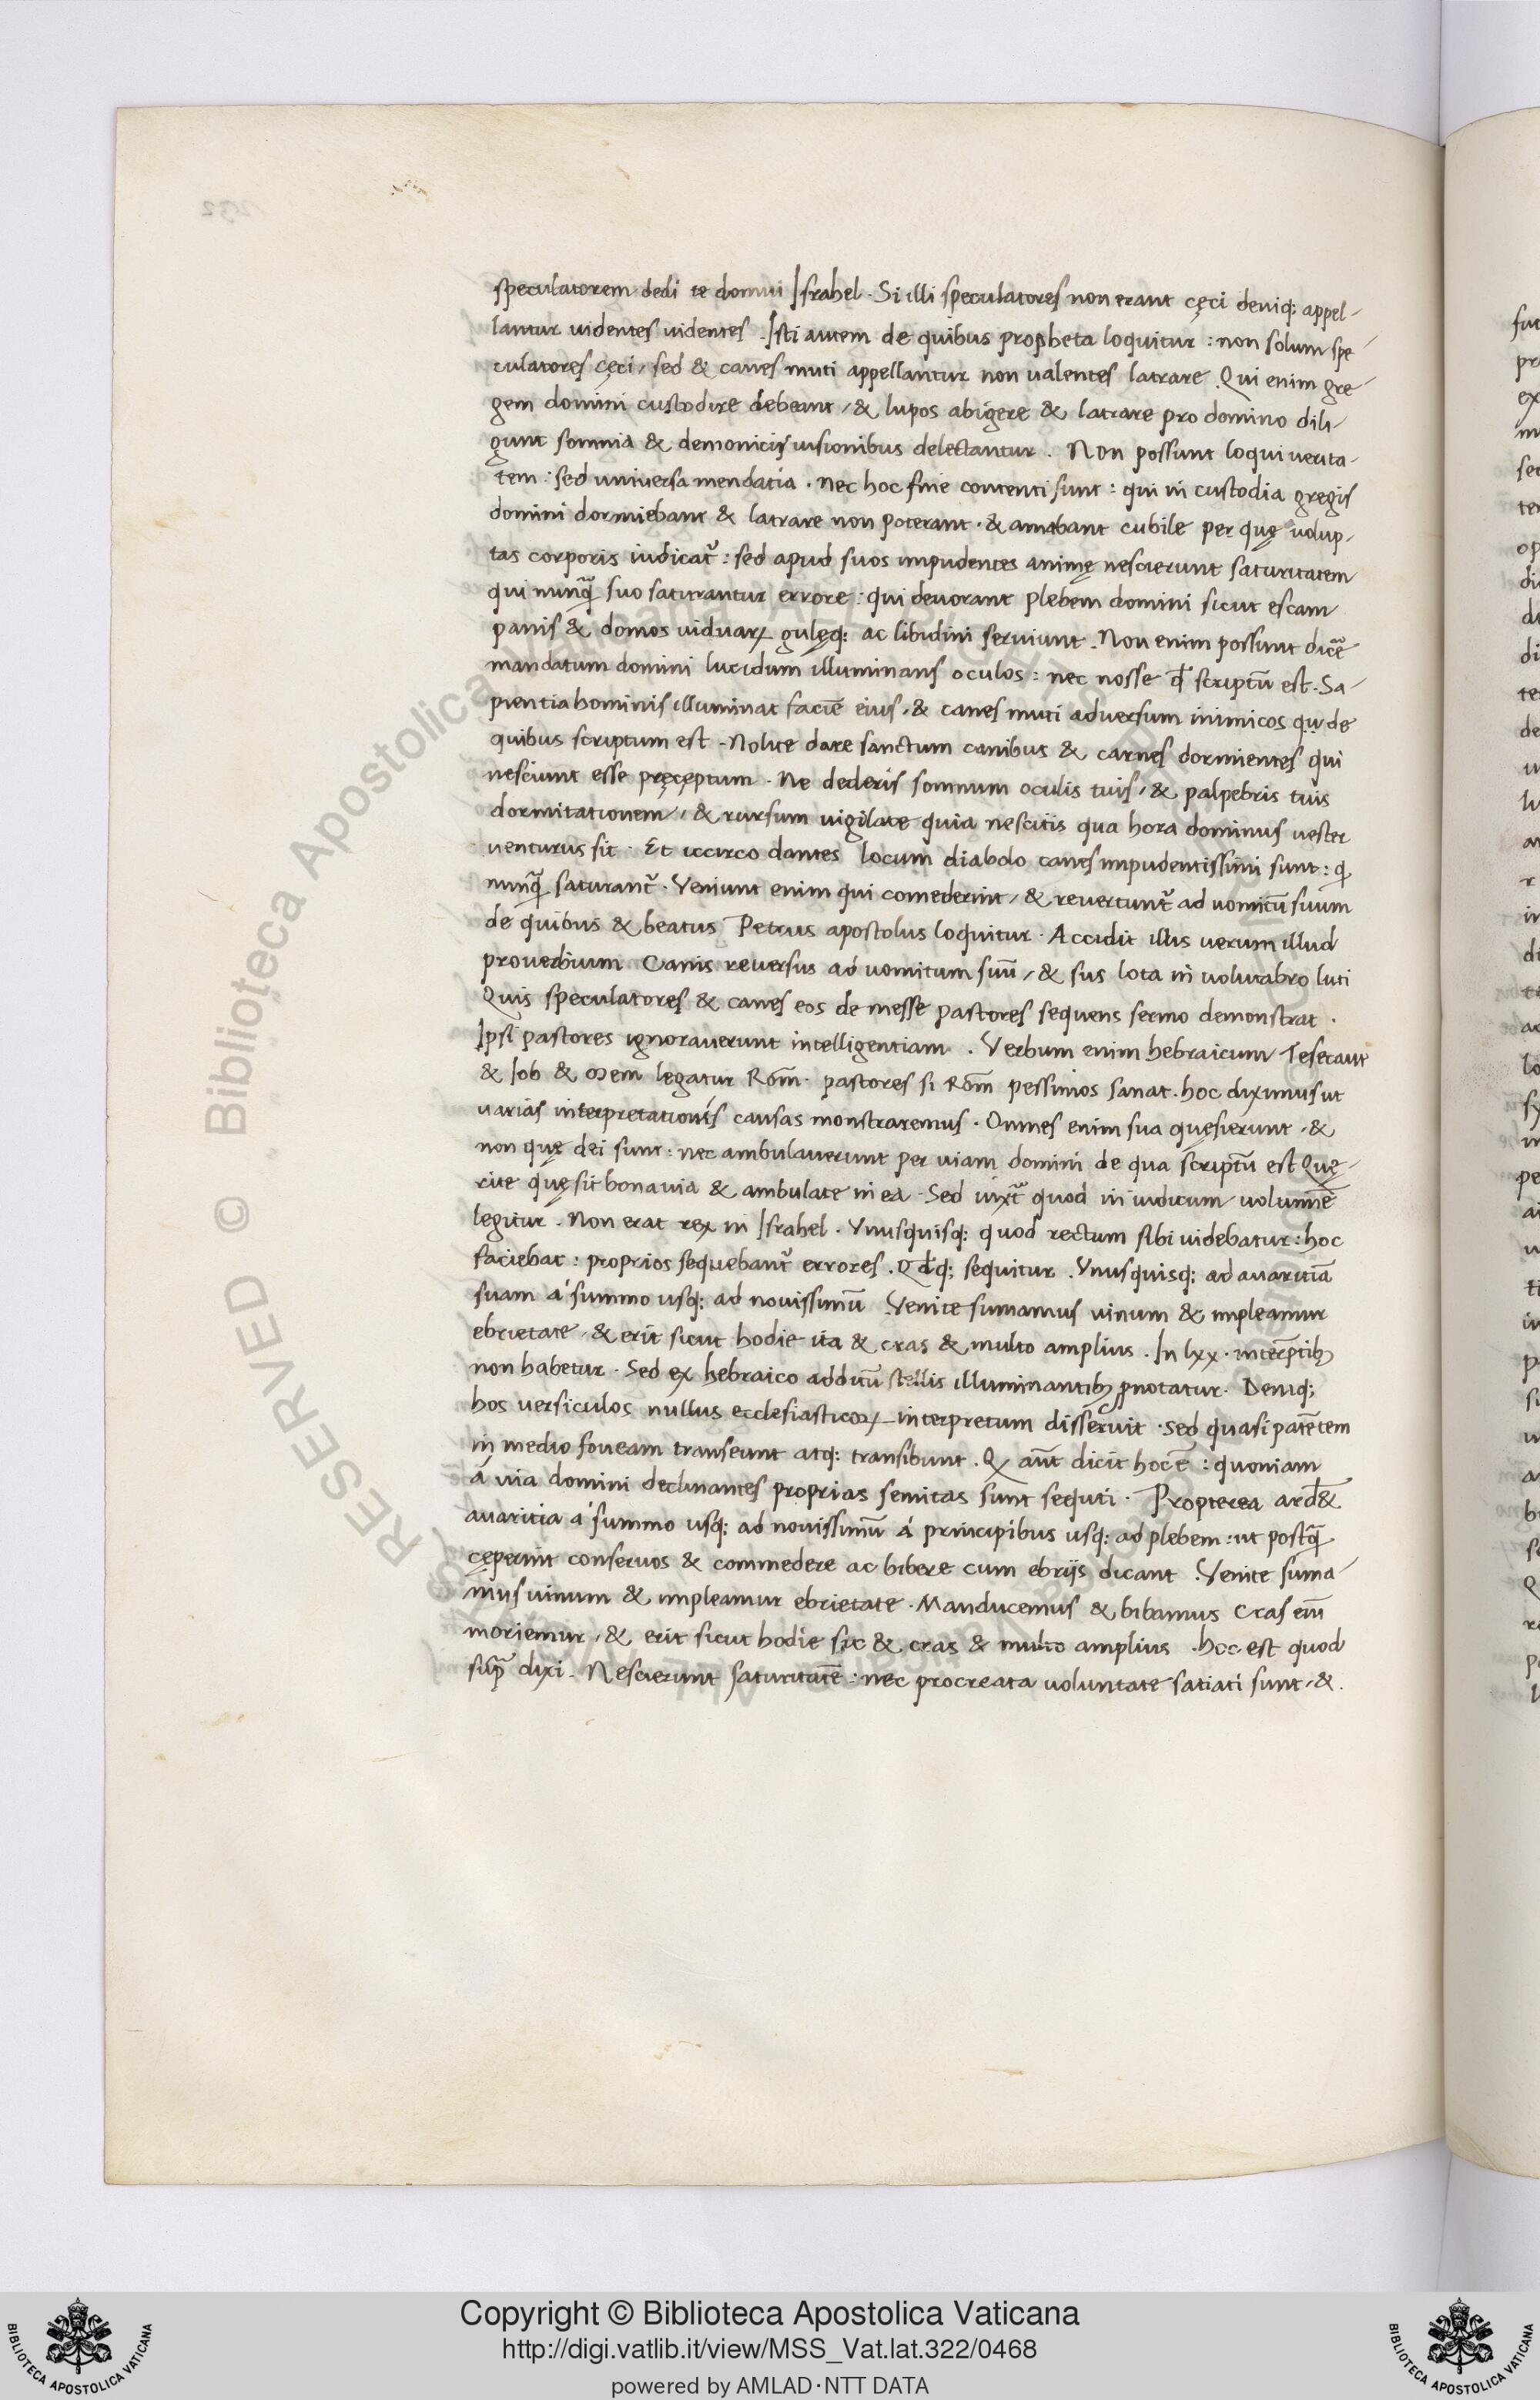 speculatorem dedi te domui Israhel. Si illi speculatores non erant cęci deniq; appel-
lantur uidentes uidentes. Isti autem de quibus propheta loquitur: non solum spe
culatores cęci, sed & canes muti appellantur non ualentes latrare. Qui enim gre-
gem domini custodire debeant, & lupos abigere & latrare pro domino dili-
gunt somnia & demonicis uisionibus delectantur. Non possunt loqui uerita-
tem: sed universa mendatia. nec hoc fine contenti sunt: qui in custodia gregis
domini dormiebant & latrare non poterant. & amabant cubile per quę uolup-
tas corporis iudicat̃: sed apud suos impudentes animę nescierunt saturitatem
qui nunq̃ suo saturantur errore: qui deuorant plebem domini sicut escam
panis & domos uiduaꝝ gulęq; ac libidini seruiunt. Non enim possunt dicẽ
mandatum domini lucidum illuminans oculos: nec nosse qđ scriptũ est. Sa-
pientia hominis illuminat faciẽ eius, & canes muti adversum inimicos qu de
quibus scriptum est. Nolite dare sanctum canibus & carnes dormientes qui
nesciunt esse pręcęptum. Ne dederis somnum oculis tuis, & palpebris tuis
dormitationem, & rursum uigilate quia nescitis qua hora dominus uester
uenturus sit. Et iccirco dantes locum diabolo canes impudentissimi sunt: q
nunq̃ saturant̃. Veniunt enim qui comederint, & reuertunt̃ ad uomitũ suum
de quibus & beatus Petrus apostolus loquitur. Accidit illis uerum illud
prouerbium Canis reuersus ad uomitum suũ, & sus lota in uolutabro luti
Quis speculatores & canes eos de messe pastores sequens sermo demonstrat.
Ipsi pastores ignorauerunt intelligentiam. Verbum enim hebraicum Tesecaut
& Iob & mem legatur Rõm. pastores si Rõm pessimos sanat. hoc diximus ut
uarias interpretationis causas monstraremus. Omnes enim sua quęsierunt, &
non quę dei sunt: nec ambulauerunt per uiam domini de qua scriptũ est Quę-
rite quę sit bona uia & ambulate in ea. Sed iuxt̃ quod in iudicum uoluminẽ
legitur. Non erat rex in Israhel. Vnusquisq; quod rectum sibi uidebatur: hoc
faciebat: proprios sequebant̃ errores. Qđq; sequitur. Vnusquisq; ad auaritiã
suam á summo usq; ad nouissimũ Venite sumamus uinum & impleamur
ebrietate, & erit sicut hodie ita & cras & multo amplius. In lxx. interp̃tibꝫ
non habetur. Sed ex hebraico additũ stellis illuminantibꝫ p̃notatur. Deniq;
hos versiculos nullus ecclesiasticoꝝ interpretum disseruit. sed quasi patẽtem
in medio foueam transeunt atq; transibunt. Qꝫ aũt dicit hoc ẽ: quoniam
á uia domini declinantes proprias semitas sunt sequti. Propterea ard&
auaritia a summo usq; ad nouissimũ á principibus usq; ad plebem: ut postq̃
cęperint conseruos & commedere ac bibere cum ebrijs dicant. Venite suma-
mus uinum & impleamur ebrietate. Manducemus & bibamus Cras eiñ
moriemur, & erit sicut hodie sic & cras & multo amplius. hoc est quod
sup̃ dixi. Nescierunt saturitatẽ: nec procreata uoluntate satiati sunt, &.
Copyright © Biblioteca Apostolica Vaticana
http://digi.vatlib.it/view/MSS_Vat.lat.322/0468
powered by AMLAD·NTT DATA